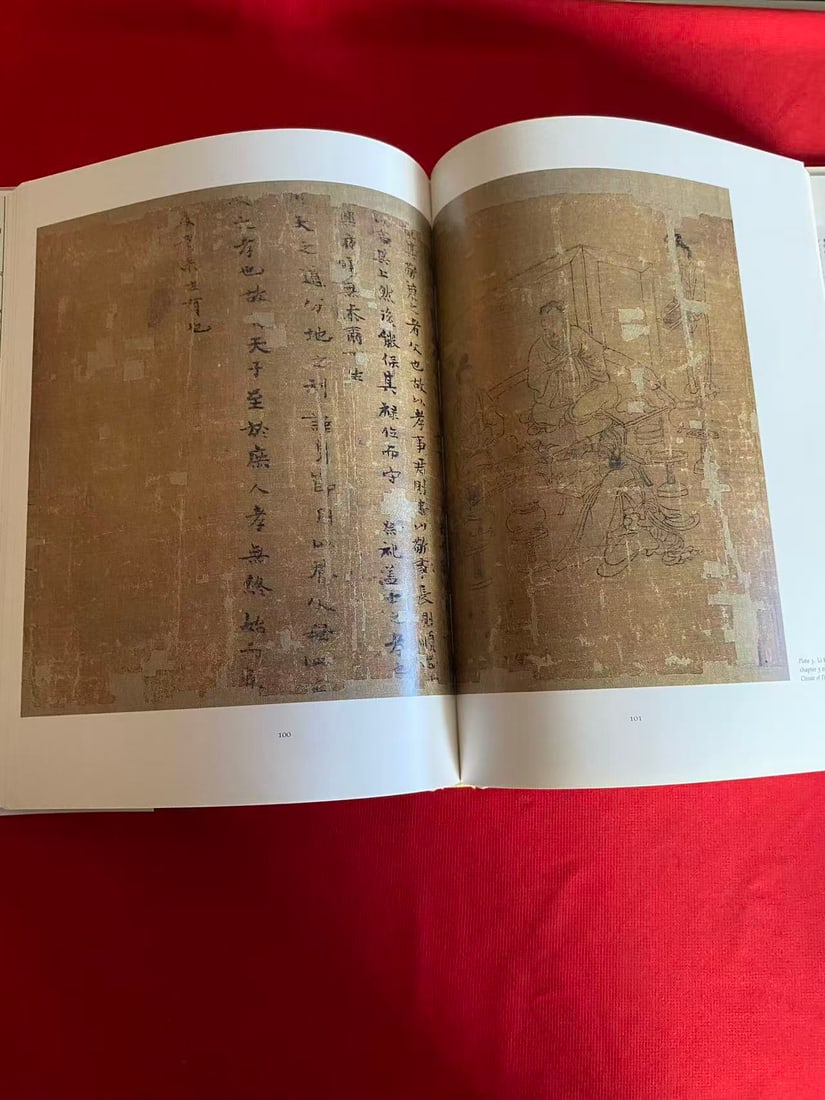 其敬之者父也故以孝事君則忠以敬事長則順
其上然後能保其祿位而守祭祀蓋士之孝也
夜無忝爾
天之道分地之利謹身節用以養父母此
之孝也故天子至於庶人孝無終始而
者未之有也
100
101
Plate 3. Li
chapter 5
Classic of